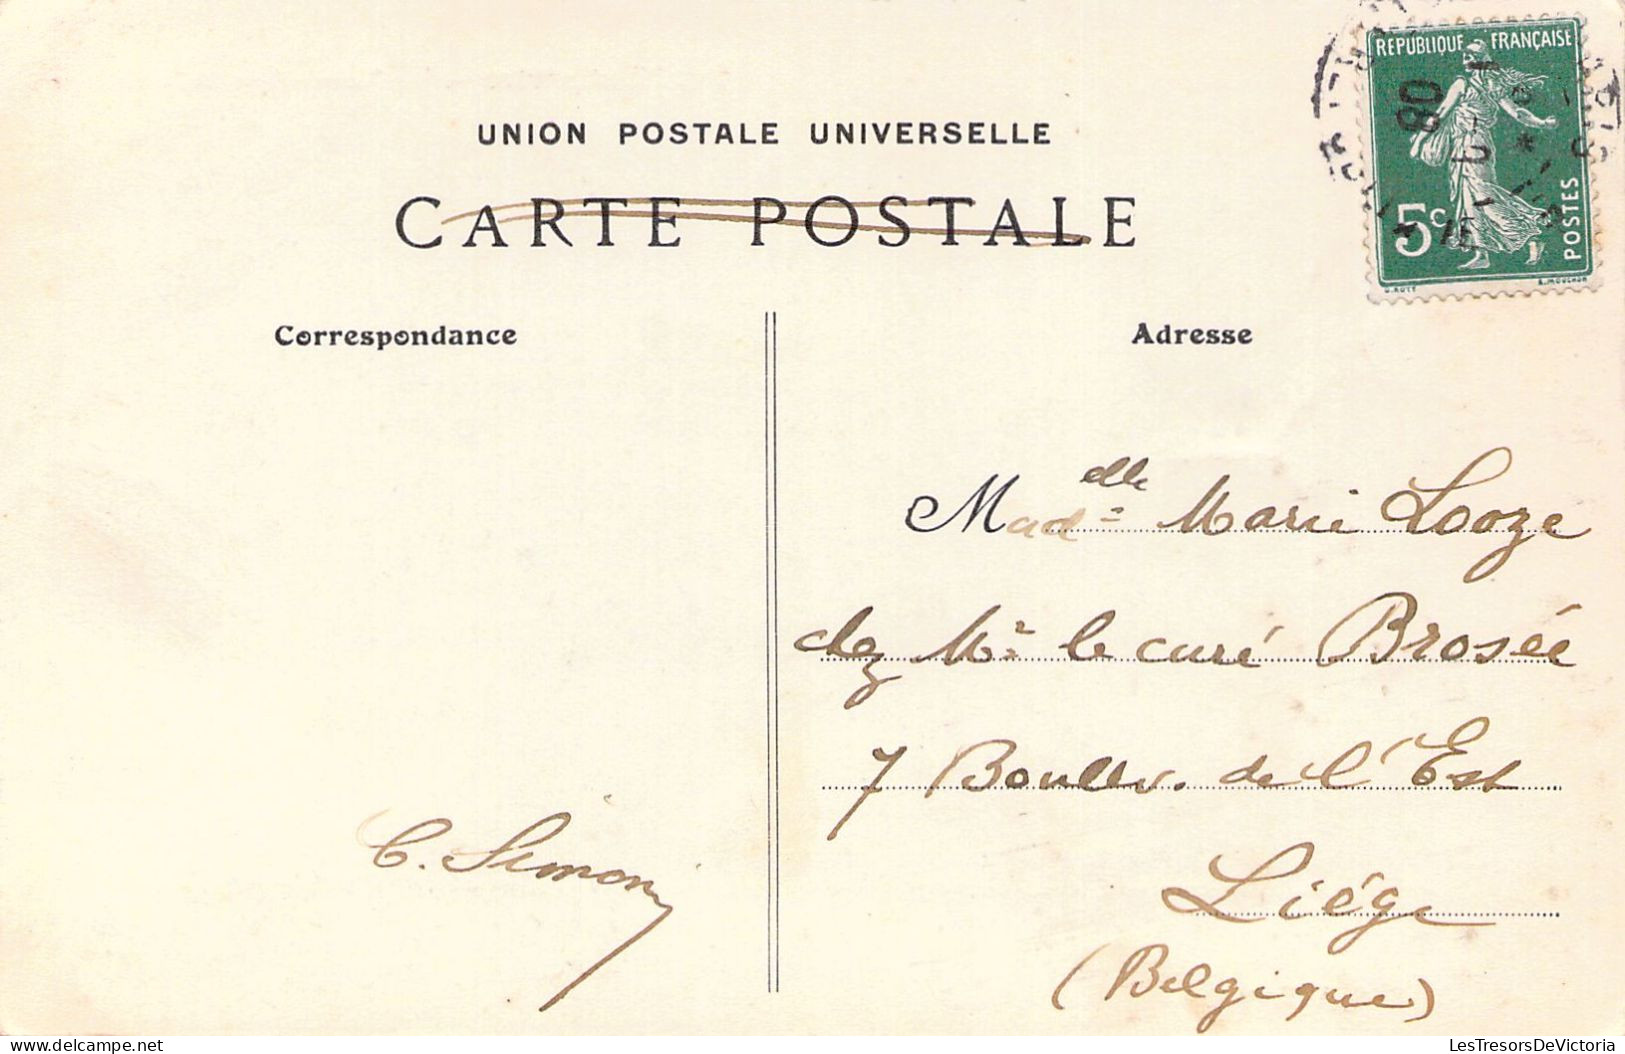 UNION POSTALE UNIVERSELLE
CARTE POSTALE
REPUBLIQUE FRANÇAISE
5c
POSTES
O. ROTY
E. MOUCHON
08
Correspondance
Adresse
Madelle Marie Looze
chez Mr le curé Brosée
7 Boullv. de l'Est
Liége
(Belgique)
C. Simon
delcampe.net
LesTresorsDeVictoria